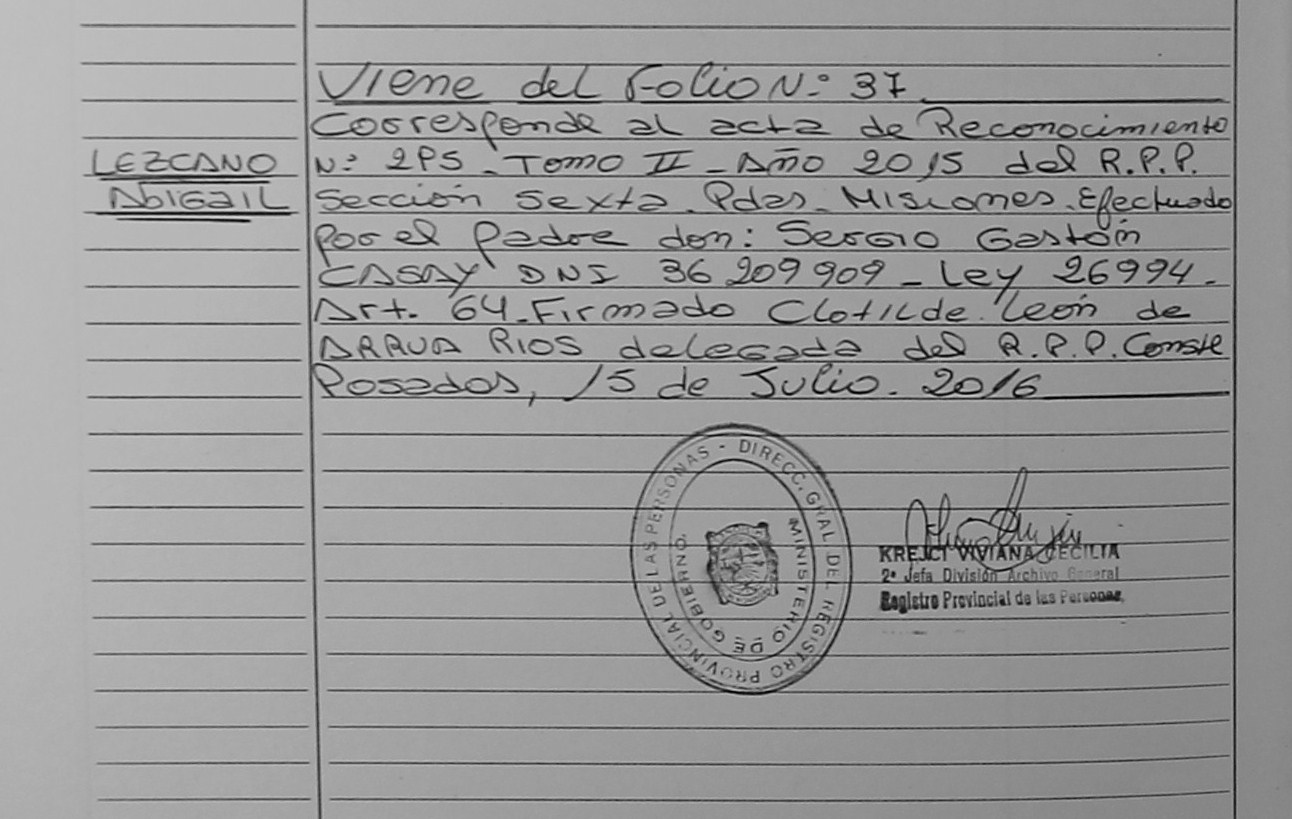 Viene del Folio Nº: 37
Corresponde al acta de Reconocimiento
LEZCANO
Nº: 2P5 - Tomo II - Año 2015 del R.P.P.
Abigail
Sección Sexta - Pdas - Misiones - Efectuado
por el padre don: Sergio Gastón
CASAY DNI 36 209 909 - Ley 26994 -
Art. 64 - Firmado Clotilde León de
ARRUA RIOS delegada del R.P.P. Conste
Posadas, 15 de Julio. 2016
DIRECC. GRAL DEL REGISTRO PROVINCIAL DE LAS PERSONAS -
MINISTERIO DE GOBIERNO.
KREJCI VIVIANA CECILIA
2º Jefa División Archivo General
Registro Provincial de las Personas